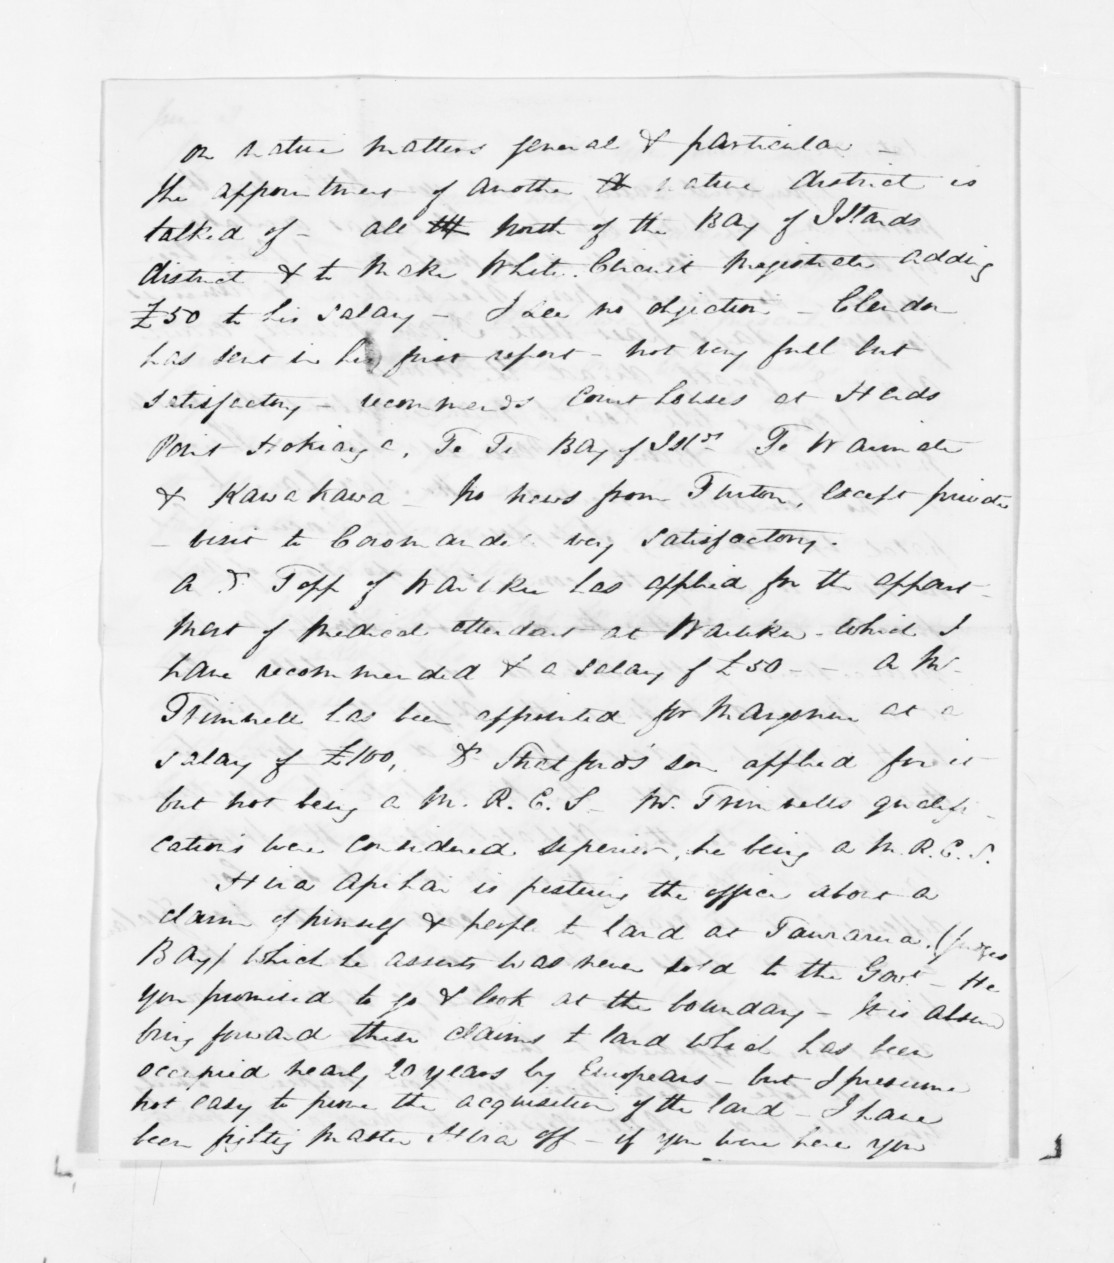 on native matters general & particular -
The appointment of another native district is
talked of - all north of the Bay of Islands
district & to make White Circuit Magistrate adding
£50 to his salary - I see no objection - Clendon
has sent in his first report - not very full but
satisfactory - recommends Court houses at Herds
Point Hokianga, Te Ti Bay of Isls Te Waimate
& Kawakawa - No news from Turton, except private
- visit to Coromandel very satisfactory.
A Dr Topp of has applied for the appoint-
ment of medical attendant at which I
have recommended & a salary of £50 - - A Mr
Trimnell has been appointed for Mangonui at a
salary of £100, Dr son applied for it
but not being a M. R. C. S - Mr. Trimnells qualifi-
cations were considered superior, he being a M. R. C. S.
Hira Apihai is pestering the office about a
claim of himself & people to land at Taurarua. (Judges
Bay) which he asserts was never sold to the Govt - He
you promised to go & look at the boundary - It is absurd
bring forward these claims to land which has been
occupied nearly 20 years by Europeans - but I presume
not easy to prove the acquisition of the land - I have
been fighting Master Hira off - if you were here you